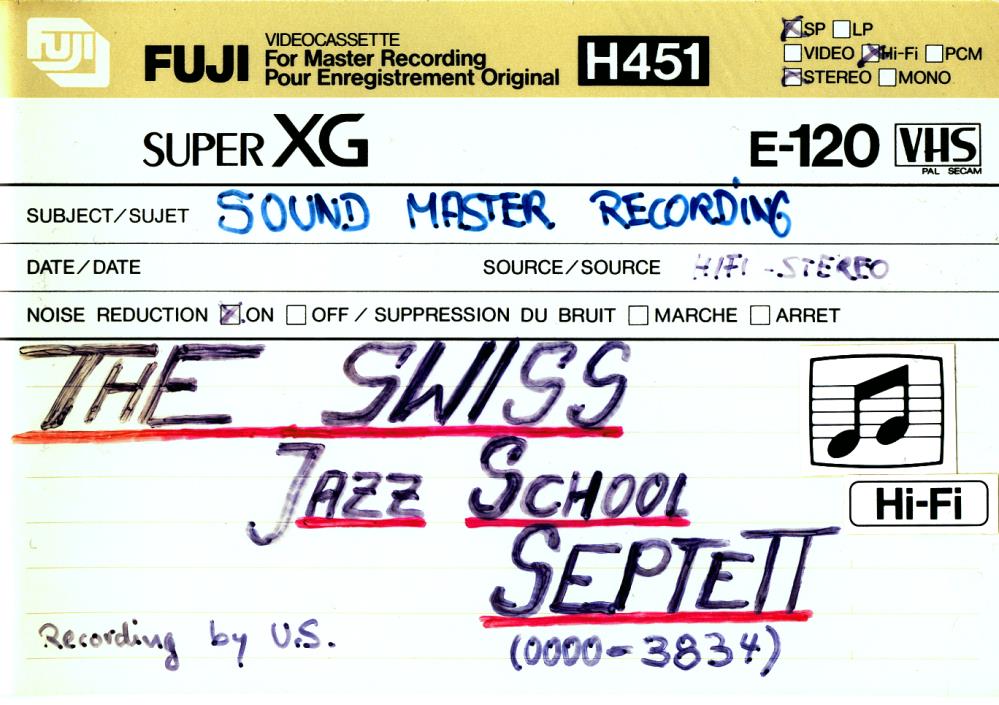 FUJI
FUJI
VIDEOCASSETTE
For Master Recording
Pour Enregistrement Original
H451
SP LP
VIDEO Hi-Fi PCM
STEREO MONO
SUPER XG
E-120 VHS
PAL SECAM
SUBJECT/SUJET SOUND MASTER RECORDING
DATE/DATE SOURCE/SOURCE HIFI - STEREO
NOISE REDUCTION ON OFF / SUPPRESSION DU BRUIT MARCHE ARRET
THE SWISS
JAZZ SCHOOL
Hi-Fi
SEPTETT
Recording by U.S. (0000-3834)